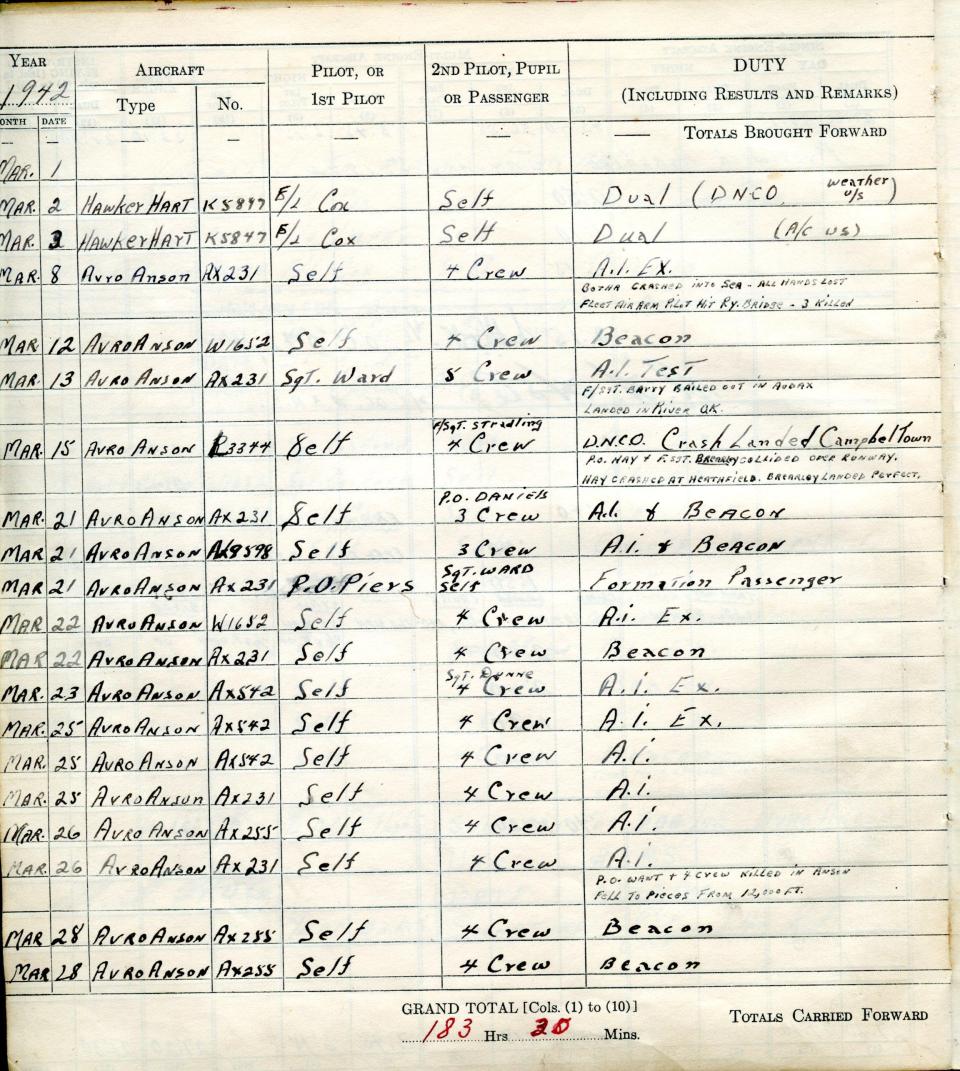 YEAR 1942 AIRCRAFT PILOT, OR 1ST PILOT 2ND PILOT, PUPIL OR PASSENGER DUTY (INCLUDING RESULTS AND REMARKS)
MONTH DATE Type No.
— — — — — — — TOTALS BROUGHT FORWARD
MAR. 1
MAR. 2 HAWKER HART K5897 F/L Cox Self Dual (DNCO weather u/s)
MAR. 3 HAWKER HART K5847 F/L Cox Self Dual (A/C US)
MAR 8 Avro Anson AX231 Self 4 Crew A.I. EX.
BOTHA CRASHED INTO SEA - ALL HANDS LOST
FLEET AIR ARM PILOT HIT RY. BRIDGE - 3 KILLED
MAR 12 AVRO ANSON W1652 Self 4 Crew Beacon
MAR. 13 AVRO ANSON AX231 SGT. Ward 5 Crew A.I. TEST
F/SGT. BARRY BAILED OUT IN AUDAX
LANDED IN RIVER OK.
F/SGT. Stradling
MAR. 15 AVRO ANSON R3344 Self 4 Crew D.N.C.O. Crash Landed CampbelTown
P.O. HAY + F.SGT. BREARLEY COLLIDED OVER RUNWAY.
HAY CRASHED AT HEATHFIELD. BREARLEY LANDED PERFECT.
P.O. DANIELS
MAR. 21 AVRO ANSON AX231 Self 3 Crew A.I. & BEACON
MAR. 21 AVRO ANSON Self 3 Crew A.I. & BEACON
SGT. WARD
MAR. 21 AVRO ANSON AX231 P.O. Piers Self Formation Passenger
MAR 22 AVRO ANSON W1652 Self 4 Crew A.I. Ex.
MAR 22 AVRO ANSON AX231 Self 4 Crew Beacon
SGT. DUNNE
MAR. 23 AVRO ANSON AX542 Self 4 Crew A.I. Ex.
MAR. 25 AVRO ANSON AX542 Self 4 Crew A.I. Ex.
MAR. 25 AVRO ANSON AX542 Self 4 Crew A.I.
MAR. 25 AVRO ANSON AX231 Self 4 Crew A.I.
MAR. 26 AVRO ANSON AX255 Self 4 Crew A.I.
MAR. 26 AVRO ANSON AX231 Self 4 Crew A.I.
P.O. WANT + 4 CREW KILLED IN ANSON
FELL TO PIECES FROM 12,000 FT.
MAR 28 AVRO ANSON AX255 Self 4 Crew Beacon
MAR 28 AVRO ANSON AX255 Self 4 Crew Beacon
GRAND TOTAL [Cols. (1) to (10)]
183 Hrs 20 Mins.
TOTALS CARRIED FORWARD